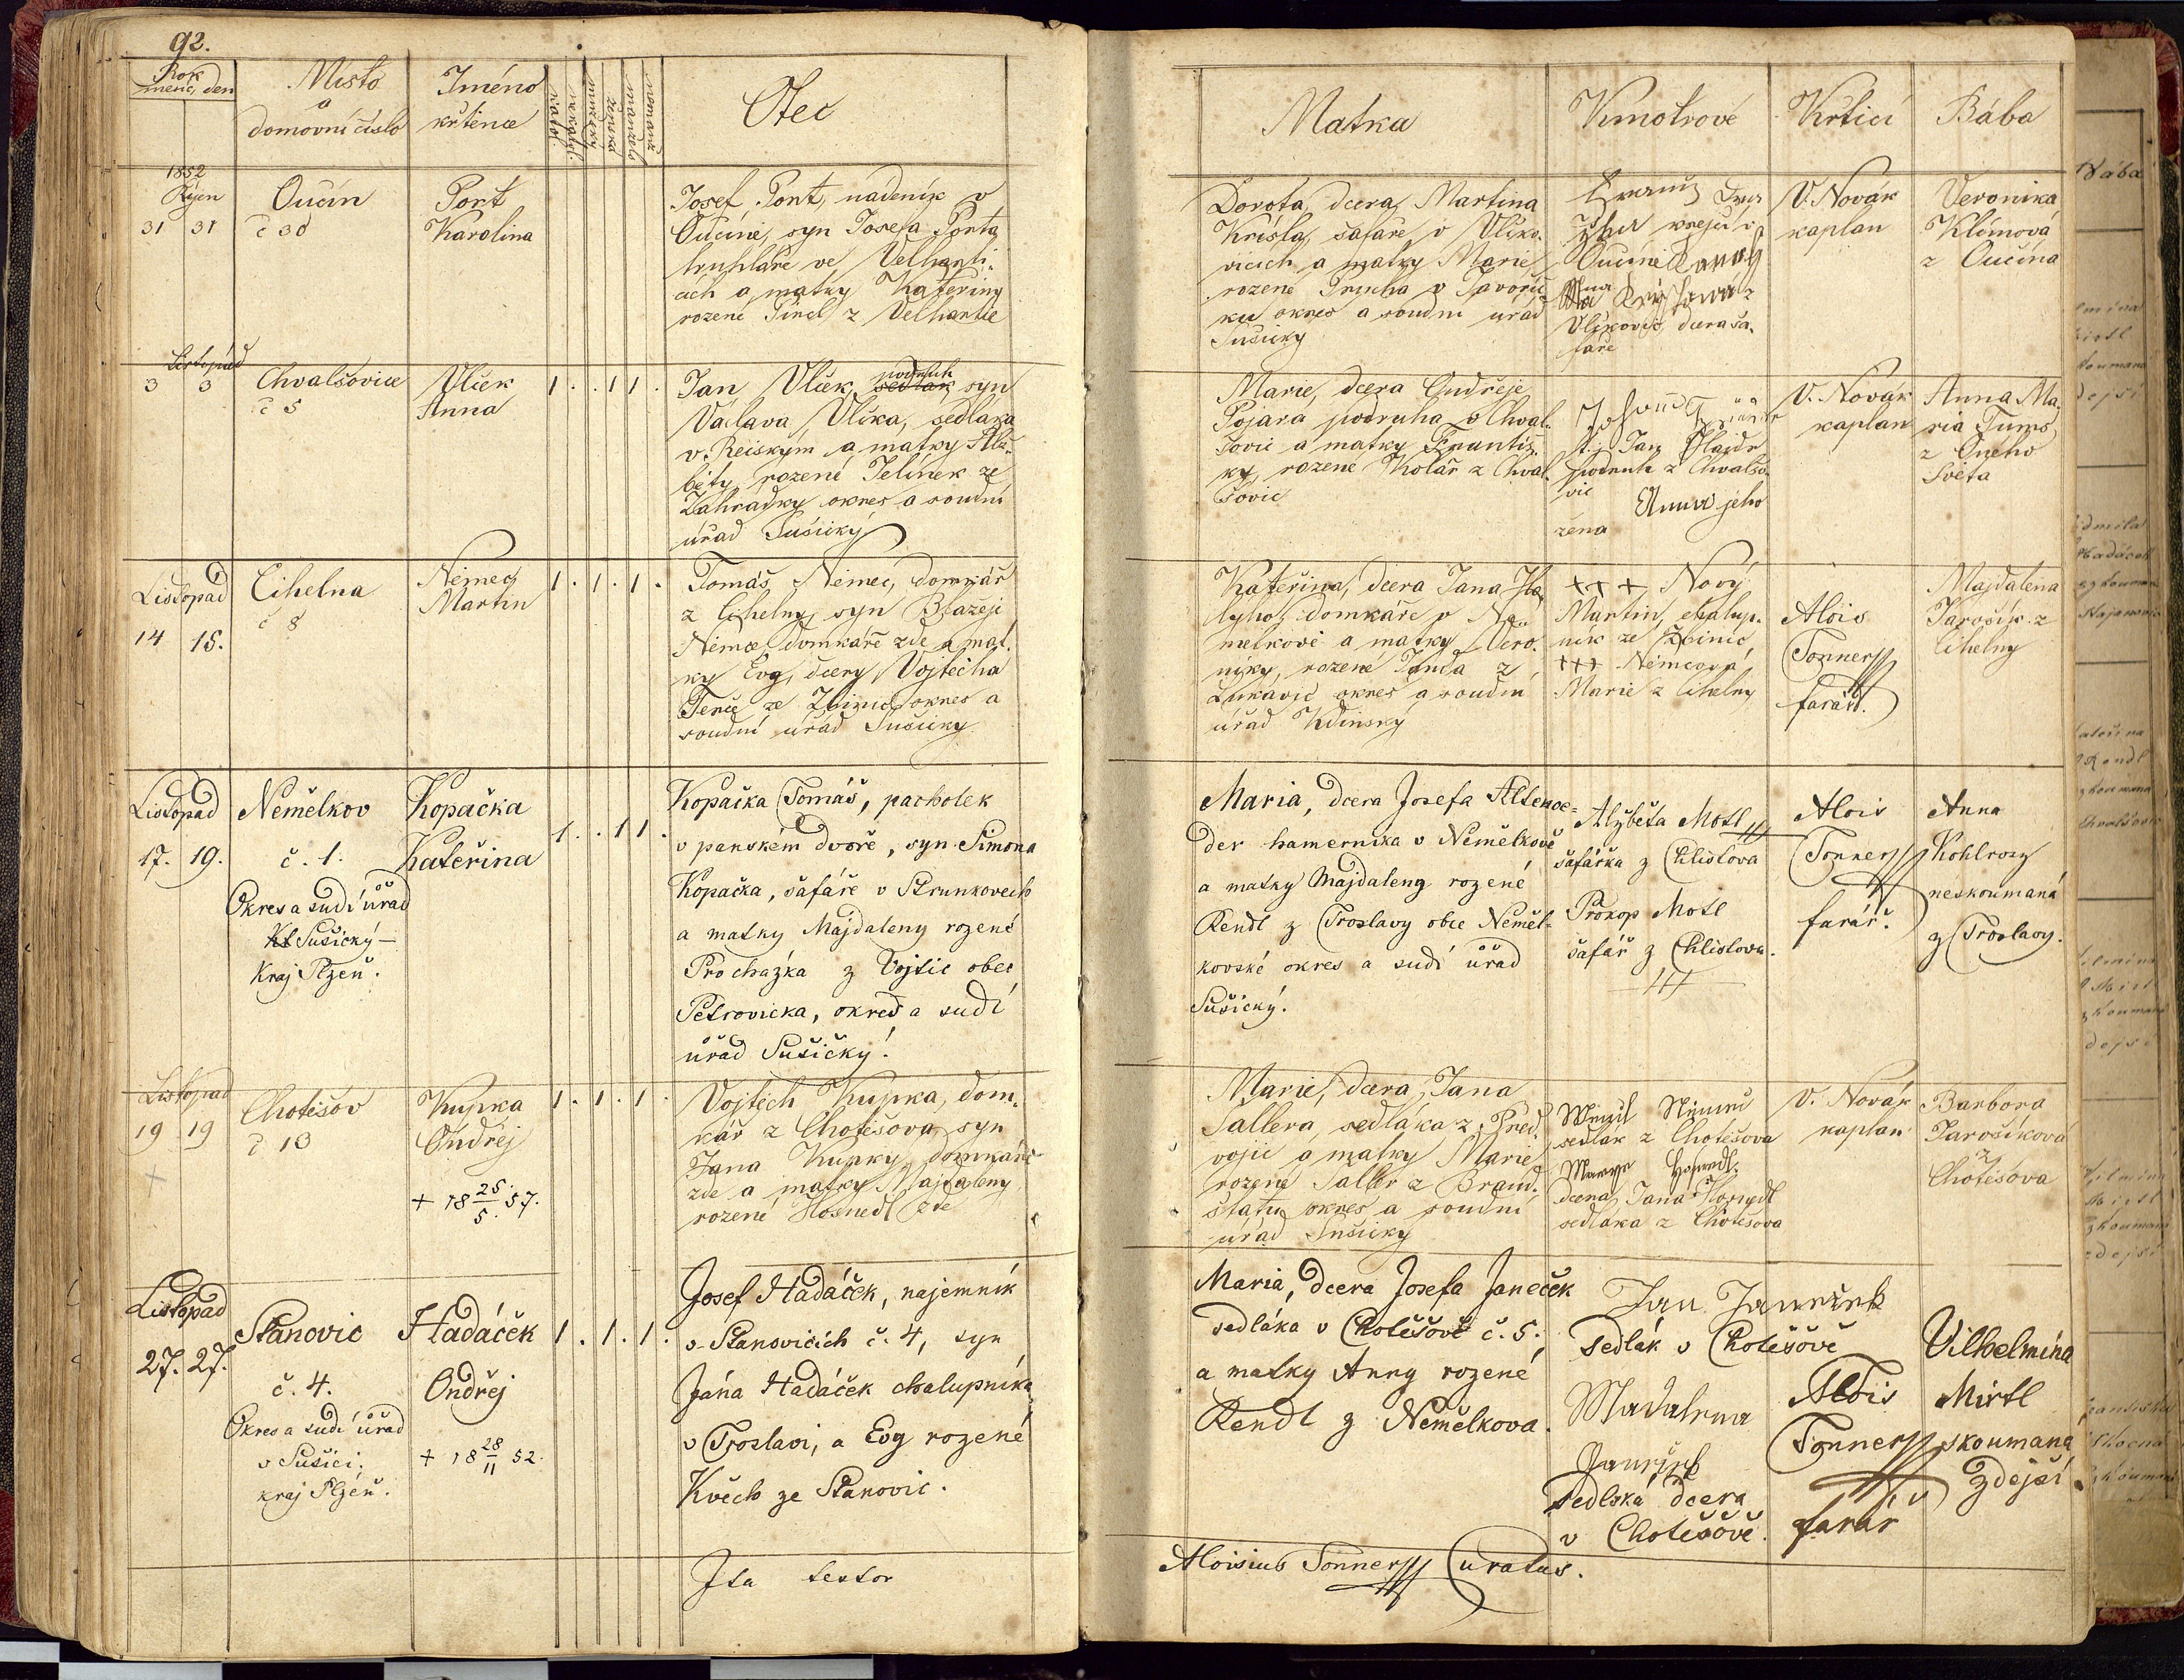 92.
Rok
měsíc, den
Místo
a
domovní číslo
Jméno
křtěnce
katol.
nekatol.
mužský
ženská
manžels
nemanž
Otec
Matka
Kmotrové
Křtící
Bába
1852
Říjen
31 31
Oučín
č 30
Port
Karolina
Josef Port, nadeník v
Oučíně, syn Josefa Porta
truhláře ve Velharti-
cích a matky Kateřiny
rozené Šindl z Velhartic
Dorota, dcera Martina
Krísla, šafáře v Vlko-
vicích a matky Marie
rozené
okres a soudní úřad
Sušický
krejčí v
Oučíně
Vlkovic, dcera ša-
fáře
V. Novák
kaplan
Veronika
Klímová
z Oučína
Listopád
3 3
Chvalšovice
č 5
Vlček
Anna
1 . . 1 1 .
Jan Vlček, podruh
sedlák syn
Václava Vlčka, sedláka
v Rejským a matky Alž-
běty, rozené Jelínek ze
Zahrádky okres a soudní
úřad Sušický
Marie, dcera Ondřeje
Pojara podruha v Chval-
šovic a matky Františ-
ky, rozené Kolář z Chval-
šovic
Johann
t.j. Jan
podruh z Chvalšo-
vic
Anna jeho
žena
V. Novák
kaplan
Anna Ma-
ria Tums
z Oného
Světa
Listopád
14 15.
Cihelna
č 8
Němec
Martin
1 . 1 . 1 .
Tomáš Němec, domkář
z Cihelny, syn Blažeje
Němce domkáře zde a mat-
ky Evy, dcery Vojtěcha
ze Zbinic okres a
soudní úřad Sušický
Kateřina, dcera Jana Hla-
domkáře v Ně-
melkově a matky Vero-
niky, rozené Janda z
Lukavic okres a soudní
úřad Kdinský
+++ Nový
Martin, chalup-
ník ze Zbinic
+++ Němcová
Marie z Cihelny
Alois
Tonner
farář.
Majdalena
Jarošík z
Cihelny
Listopád
17. 19.
Nemělkov
č. 1.
Okres a sudí úřad
Kl Sušický –
Kraj Plzeň.
Kopačka
Kateřina
1 . . 1 1 .
Kopačka Tomáš, pacholek
v panském dvoře, syn Šimona
Kopačka, šafáře v Strunkovech
a matky Majdaleny rozené
Prochazka z Vojtic obec
Petrovicka, okres a sudí
úřad Sušičký!
Maria, dcera Josefa Altenoe-
der hamernika v Nemělkově
a matky Majdaleny rozené
Rendl z Troslavy obce Neměl-
kovské okres a sudí úřad
Sušický.
Alžběta Motl
šafářka z Chlistova
Prokop Motl
šafář z Chlistova.
Alois
Tonner
farář.
Anna
Kohlrosz
neskoumaná
z Troslavy.
Listopad
19 19
Chotěšov
č 13
Kupka
Ondřej
+ 18 25/5. 57.
1 . 1 . 1 .
Vojtěch Kupka, dom-
kář z Chotěšova, syn
Jana Kupky, domkáře
zde a matky Majdaleny
rozené Hosnedl zde
Marie, dcera Jana
Sallera, sedláka z Před-
vojic a matky Marie
rozené Saller z Brand-
štatu okres a soudní
úřad Sušický
sedlák z Chotěšova
dcera Jana Hosnedl
sedláka z Chotěšova
V. Novák
kaplan
Barbora
Jarošíková
z
Chotěšova
Listopad
27. 27.
Stanovic
č. 4.
Okres a sudí úřad
v Sušici.
kraj Plzeň.
Hadáček
Ondřej
+ 18 28/11 52.
1 . 1 . 1 .
Josef Hadáček, najemník
v Stanovicích č. 4, syn
Jána Hadáček chalupníka
v Troslavi, a Evy rozené
Květch ze Stanovic.
Maria, dcera Josefa Janeček
sedláka v Chotěšově č. 5.
a matky Anny rozené
Rendl z Nemělkova.
Jan Janeček
sedlák v Chotěšově
Madalena
Janeček
sedlská dcera
v Chotěšově.
Alois
Tonner
farář
Vilhelmina
Mirtl
skoumana
zdejší
Ita testor
Aloisius Tonner Curatus.